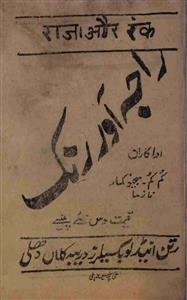 राजा और रंक
راجہ اور رنک
اداکاران
کم کم ۔ سنجیو کمار
نازیما
قیمت دس نئے پیسے
رتن اینڈ کو بکسیلرز دریبہ کلاں دھلی